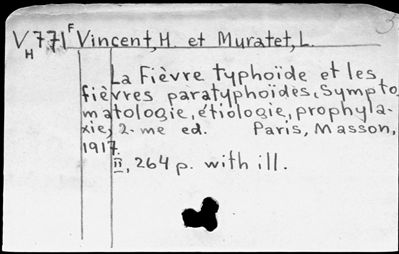 VH771F Vincent, H. et Muratet, L.
La Fièvre typhoïde et les
fièvres paratyphoïdes, Sympto
matologie, étiologie, prophyla-
xie, 2-me ed. Paris, Masson,
1917.
II, 264 p. with ill.
3